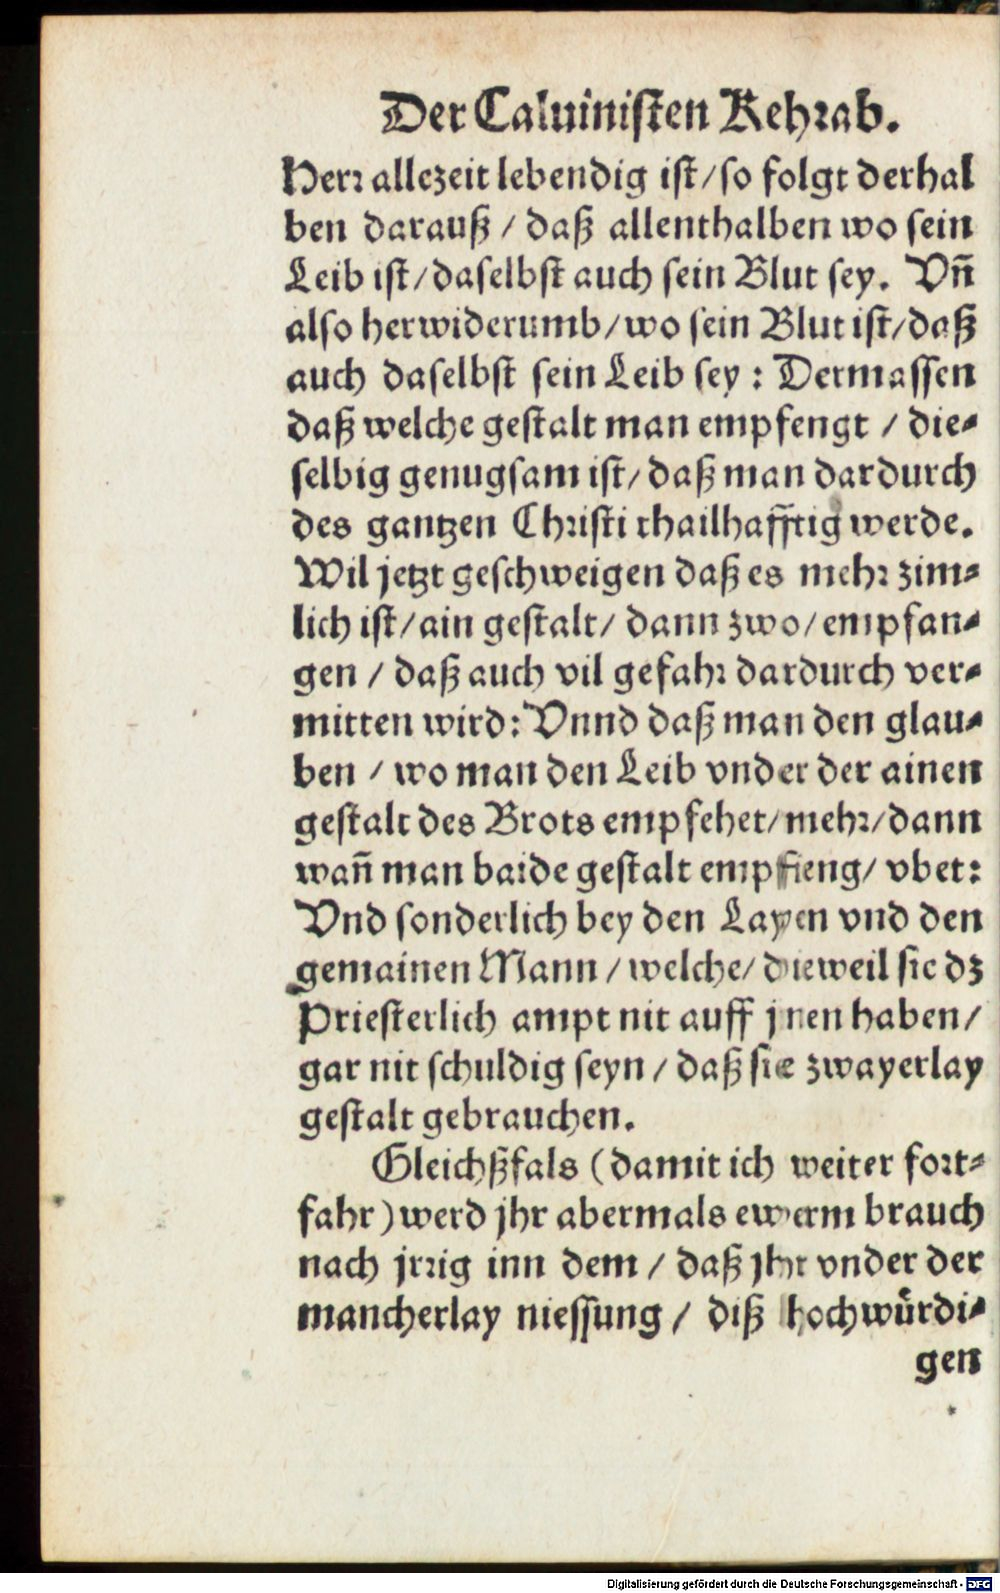 Der Caluinisten Kehrab.
Herr allezeit lebendig ist/so folgt derhal
ben darauß / daß allenthalben wo sein
Leib ist/daselbst auch sein Blut sey. Vñ
also herwiderumb/wo sein Blut ist/daß
auch daselbst sein Leib sey : Dermassen
daß welche gestalt man empfengt / die⸗
selbig genugsam ist/daß man dardurch
des gantzen Christi thailhafftig werde.
Wil jetzt geschweigen daß es mehr zim⸗
lich ist/ain gestalt/ dann zwo/empfan⸗
gen / daß auch vil gefahr dardurch ver⸗
mitten wird: Vnnd daß man den glau⸗
ben / wo man den Leib vnder der ainen
gestalt des Brots empfehet/mehr/dann
wañ man baide gestalt empfieng/ vbet:
Vnd sonderlich bey den Layen vnd den
gemainen Mann / welche/ dieweil sie dz
Priesterlich ampt nit auff jnen haben/
gar nit schuldig seyn / daß sie zwayerlay
gestalt gebrauchen.
Gleichßfals (damit ich weiter fort⸗
fahr) werd jhr abermals ewerm brauch
nach jrrig inn dem / daß jhr vnder der
mancherlay niessung / diß hochwürdi⸗
gen
Digitalisierung gefördert durch die Deutsche Forschungsgemeinschaft - DFG